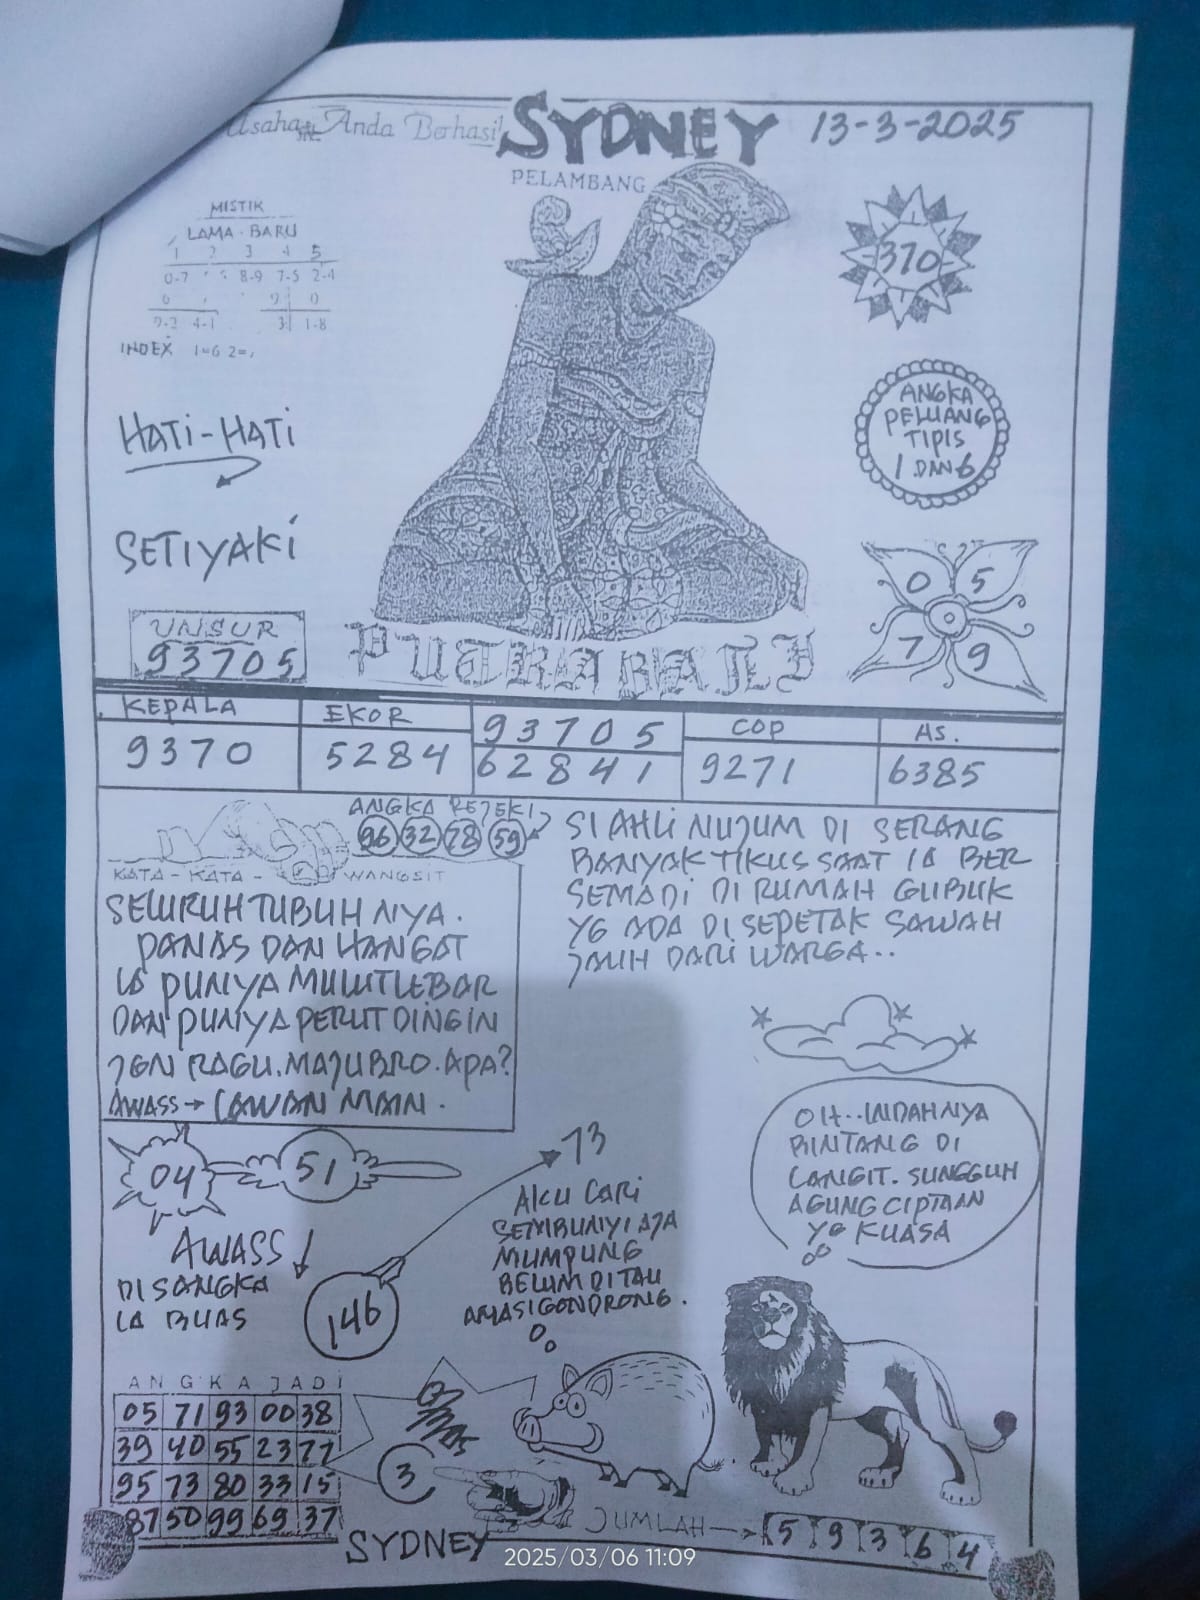 Usaha Anda Berhasil
SYDNEY
13-3-2025
PELAMBANG
MISTIK
LAMA - BARU
1 2 3 4 5
0-7 8-9 7-5 2-4
0 9 0
4-1 3 1-8
INDEX 1=6 2=
370
HATI-HATI
ANGKA
PELUANG
TIPIS
1 DAN 6
SETIYAKI
0 5
7 9
UNSUR
93705
PUTRA BALI
KEPALA
9370
EKOR
5284
93705
62841
COP
9271
AS.
6385
ANGKA REJEKI
96 32 78 59
KATA - KATA - WANGSIT
SELURUH TUBUH NYA.
PANAS DAN HANGAT
IA PUNYA MULUT LEBAR
DAN PUNYA PERUT DINGIN
JGN RAGU. MAJU BRO. APA?
AWASS → LAWAN MAIN.
SI AHLI NUJUM DI SERANG
BANYAK TIKUS SAAT IA BER
SEMADI DI RUMAH GUBUK
YG ADA DI SEPETAK SAWAH
JAUH DARI WARGA..
04
51
73
AWASS
DI SANGKA
IA BUAS
146
AKU CARI
SEMBUNYI AJA
MUMPUNG
BELUM DI TAU
AMA SI GONDRONG.
OH.. INDAHNYA
BINTANG DI
LANGIT. SUNGGUH
AGUNG CIPTAAN
YG KUASA
ANGKA JADI
05 71 93 00 38
39 40 55 23 77
95 73 80 33 15
87 50 99 69 37
3
JUMLAH → 5 9 3 6 4
SYDNEY
2025/03/06 11:09